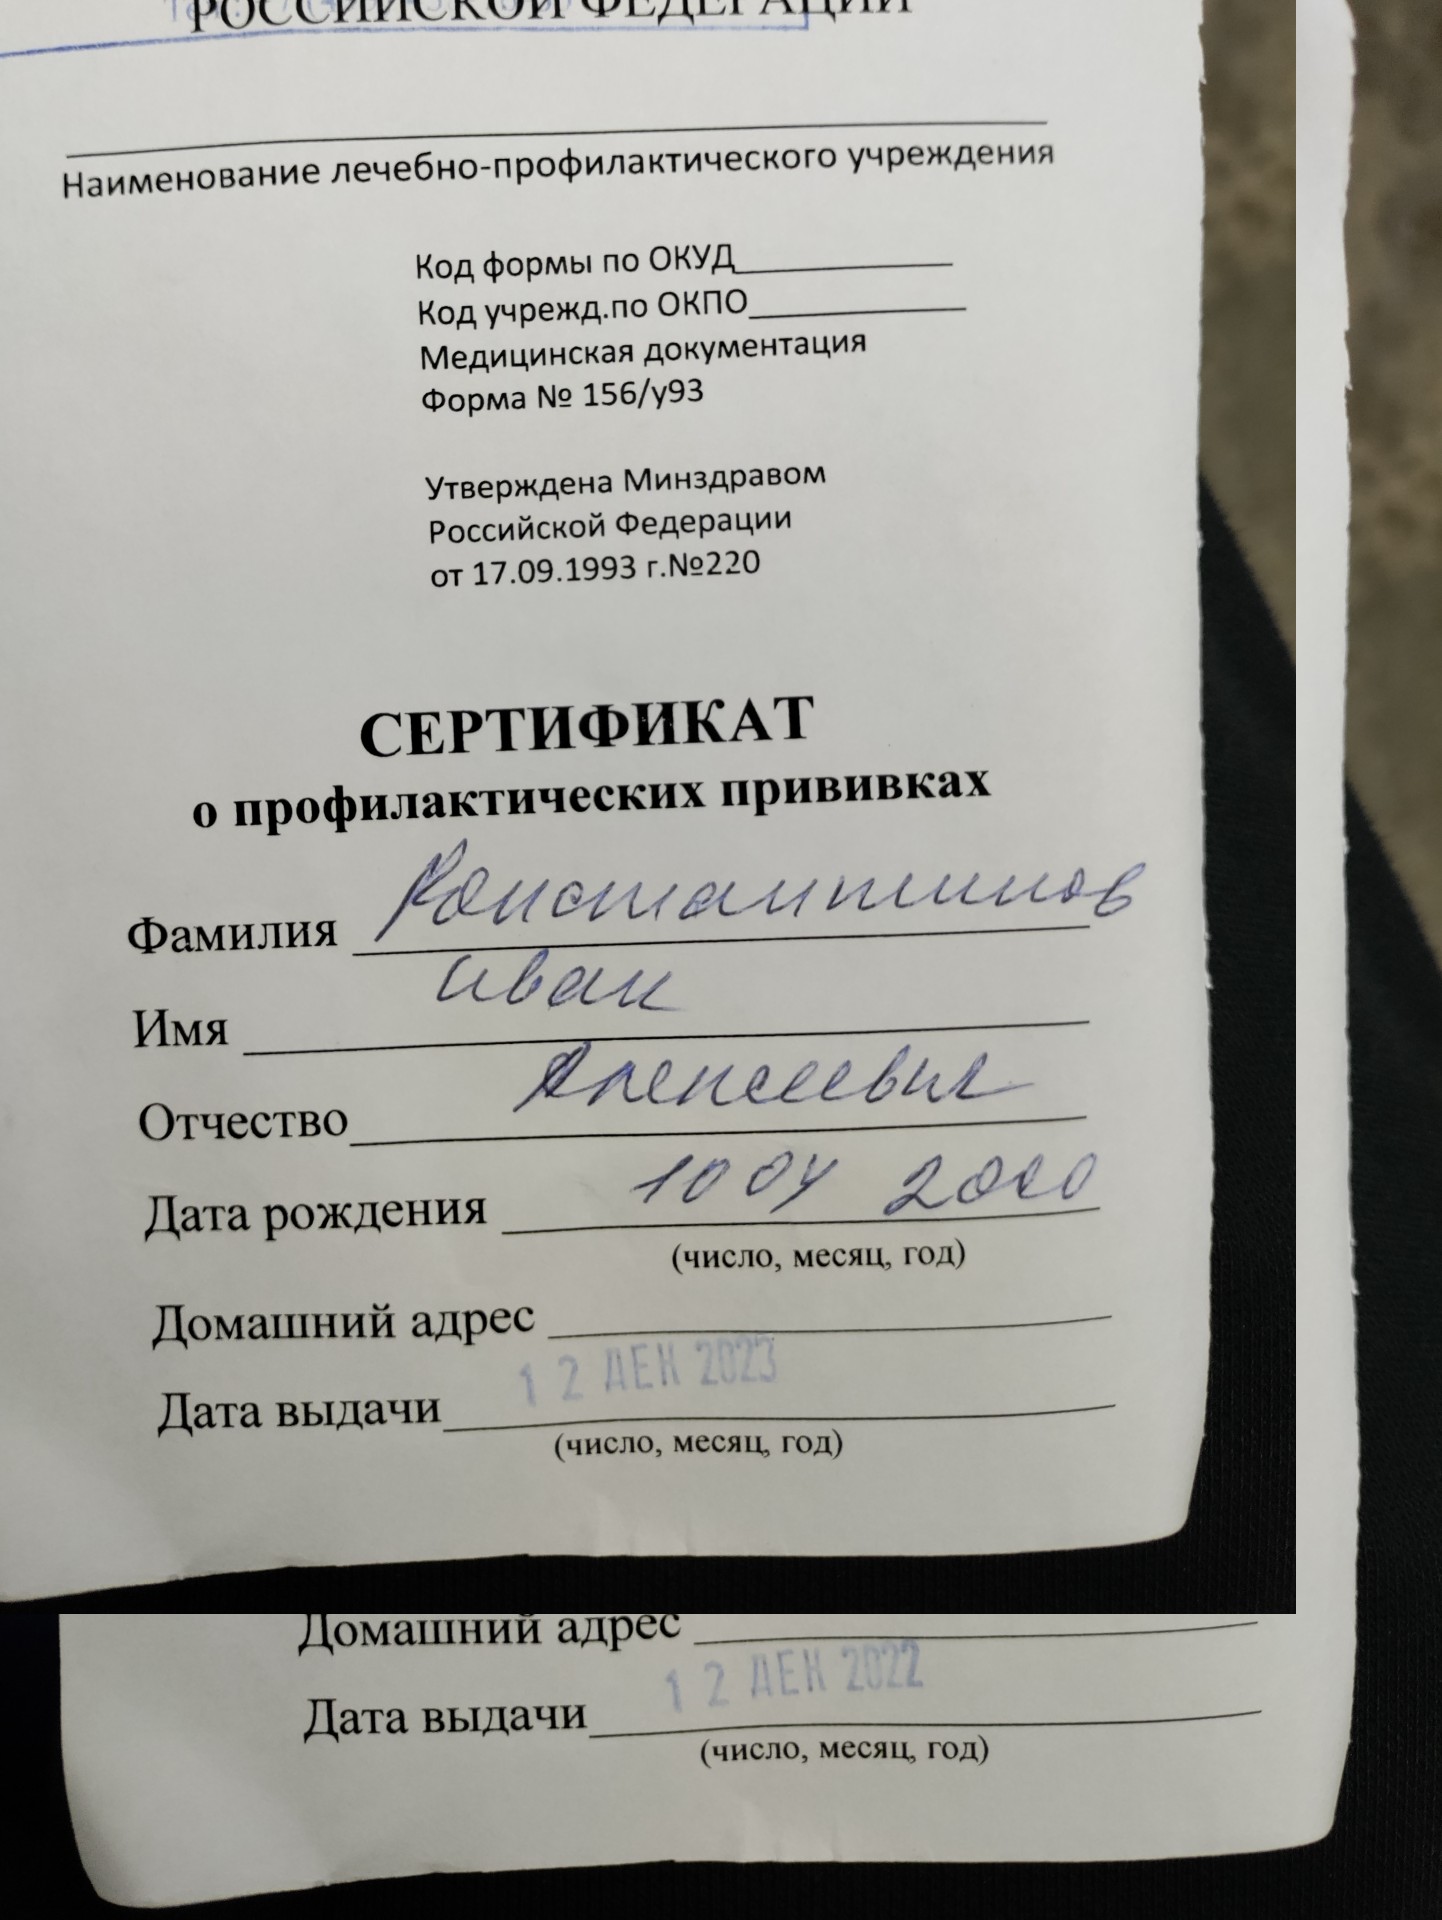 РОССИЙСКОЙ ФЕДЕРАЦИИ
Наименование лечебно-профилактического учреждения
Код формы по ОКУД
Код учрежд.по ОКПО
Медицинская документация
Форма № 156/у93
Утверждена Минздравом
Российской Федерации
от 17.09.1993 г.№220
СЕРТИФИКАТ
о профилактических прививках
Фамилия Константинов
Имя Иван
Отчество Алексеевич
Дата рождения 10 04 2000
(число, месяц, год)
Домашний адрес
Дата выдачи 12 ДЕК 2023
(число, месяц, год)
Домашний адрес
Дата выдачи 12 ДЕК 2022
(число, месяц, год)